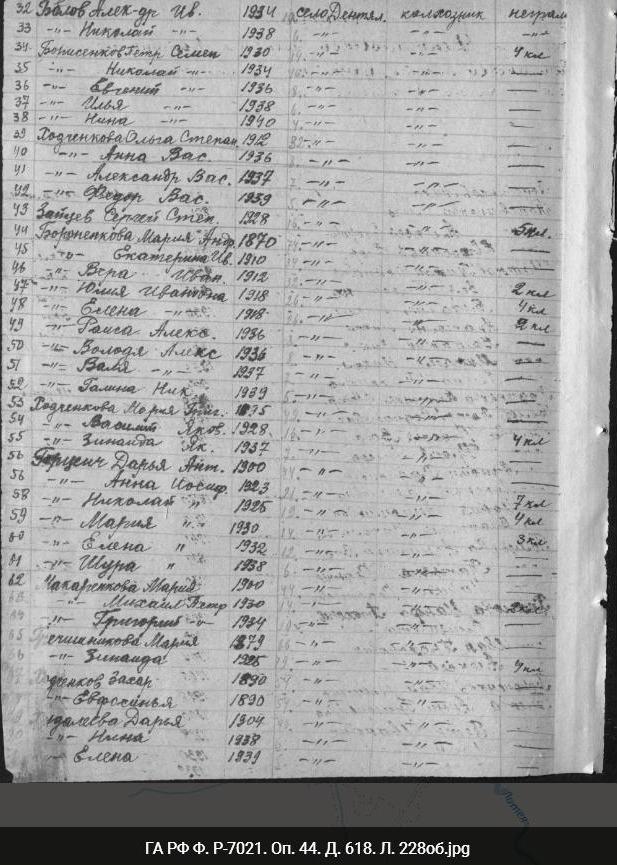 32 Боблов Алек-др Ив. 1934 село Дентял. колхозник неграм
33 -"- Николай -"- 1938 -"- -"- -"-
34 Борисенков Петр Семен 1930 -"- -"- 4 кл
35 -"- Николай -"- 1934 -"- -"- —
36 -"- Евгений -"- 1936 8. -"- -"- —
37 -"- Илья -"- 1938 6. -"- -"- —
38 -"- Нина -"- 1940 4. -"- -"- —
39 Ходченкова Ольга Степан. 1912 32 -"- -"- —
40 -"- Анна Вас. 1936 8. -"- -"- —
41 -"- Александр Вас. 1937 7. -"- -"- —
42 -"- Федор Вас. 1939 5. -"- -"- —
43 Зайцев Сергей Степ. 1928 -"- -"- 5 кл.
44 Борененкова Мария Анд. 1870 -"- -"- —
45 -"- Екатерина Ив. 1910 -"- -"- —
46 -"- Вера Иван. 1912 -"- -"- —
47 -"- Юлия Ивановна 1918 26. -"- -"- 2 кл
48 -"- Елена -"- 1918 -"- -"- 4 кл
49 -"- Раиса Алекс. 1936 -"- -"- 2 кл
50 -"- Володя Алекс 1936 8. -"- -"- —
51 -"- Валя -"- 1937 7. -"- -"- —
52 -"- Галина Ник. 1939 5. -"- -"- —
53 Ходченкова Мария Григ. -"- -"- —
54 -"- Василий Яков. 1928 16. -"- -"- 4 кл
55 -"- Зинаида Як. 1937 7. -"- -"- —
56 Дарья Ант. 1900 44. -"- -"- —
56 -"- Анна Иосиф. 1923 21. -"- -"- —
58 -"- Николай " 1925 19. -"- -"- 7 кл
59 -"- Мария " 1930 14. -"- -"- 4 кл
60 -"- Елена " 1932 12. -"- -"- 3 кл
61 -"- Шура " 1938 6. -"- -"- —
62 Макаренкова Мария 1900 -"- -"- —
-"- Михаил Петр 1930 14. -"- -"-
-"- Григорий -"- 1934 -"- -"- —
65 Гречишникова Мария 1879 -"- -"- —
-"- Зинаида 1925 -"- -"- 4 кл
Ходченков Захар 1890 -"- -"- —
-"- Евфросинья 1890 -"- -"- —
Дарья 1904 -"- -"- —
-"- Нина 1938 -"- -"- —
Елена 1939 -"- -"- —
ГА РФ Ф. Р-7021. Оп. 44. Д. 618. Л. 228об.jpg